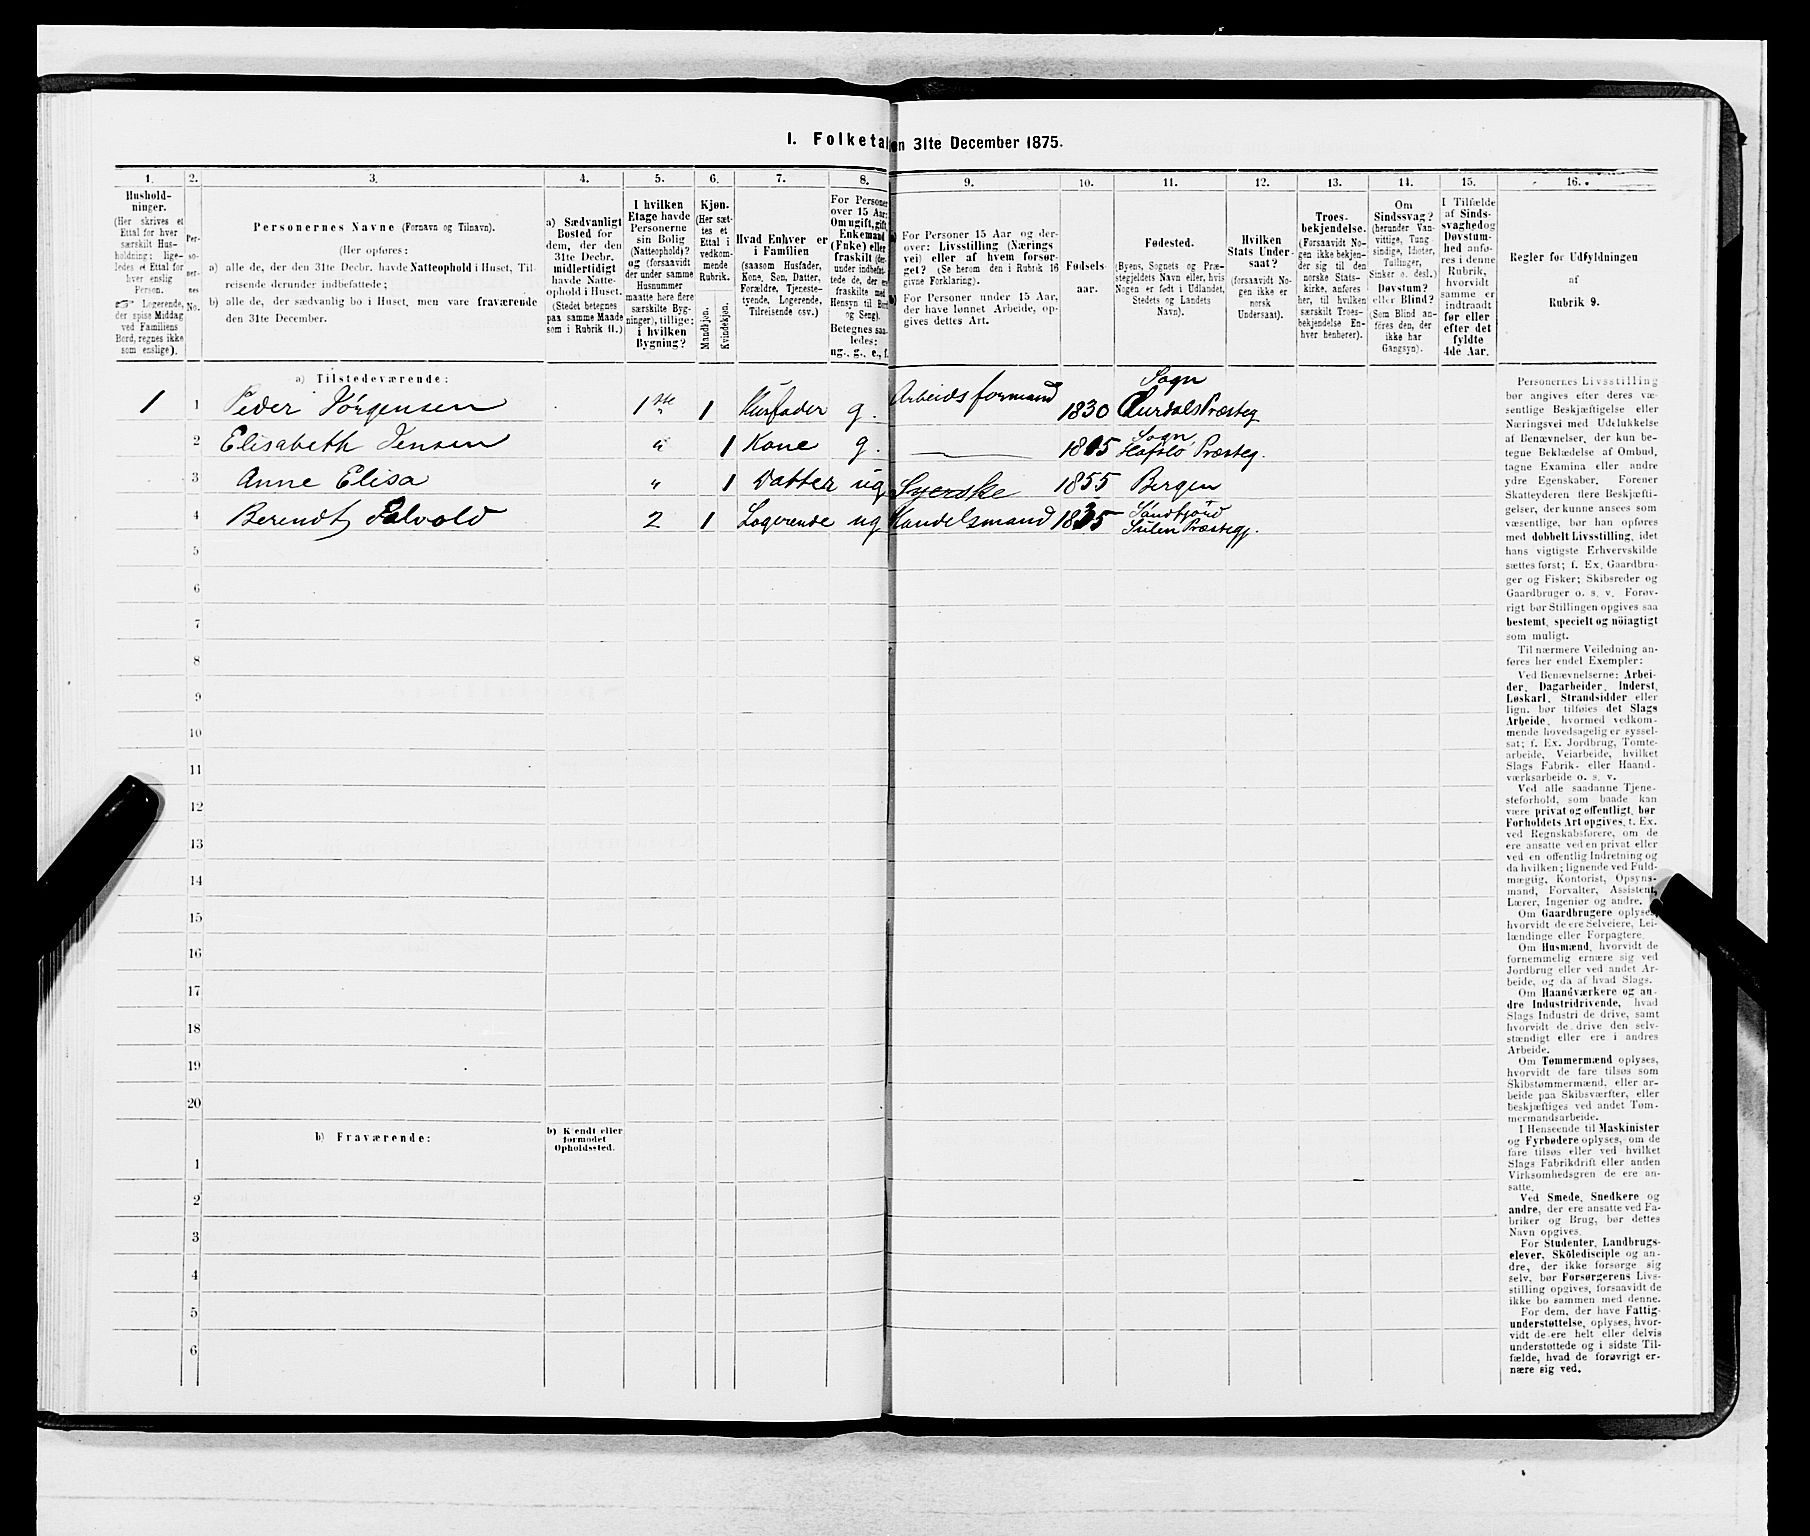 I. Folketal den 31te December 1875.
1. 2. 3. 4. 5. 6. 7. 8. 9. 10. 11. 12. 13. 14. 15. 16.
Hushold-
ninger.
(Her skrives et
Ettal for hver
særskilt Hus-
holdning; lige-
ledes et Ettal for
hver enslig
Person.
☞ Logerende,
der spise Middag
ved Familiens
Bord, regnes ikke
som enslige).
Per-
so-
ner-
nes
No.
Personernes Navne (Fornavn og Tilnavn).
(Her opføres:
a) alle de, der den 31te Decbr. havde Natteophold i Huset, Til-
reisende derunder indbefattede;
b) alle de, der sædvanlig bo i Huset, men vare fraværende
den 31te December.
a) Sædvanligt
Bosted for
dem, der den
31te Decbr.
midlertidigt
havde Natte-
ophold i Huset.
(Stedet betegnes
paa samme Maade
som i Rubrik 11.)
I hvilken
Etage havde
Personerne
sin Bolig
(Natteophold)?
og (forsaavidt
der under samme
Husnummer
maatte høre flere
særskilte Byg-
ninger), tillige:
i hvilken
Bygning?
Kjøn.
(Her sæt-
tes et
Ettal i
vedkom-
mende
Rubrik.
Mandkjøn.
Kvindekjøn.
Hvad Enhver er
i Familien
(saasom Husfader,
Kone, Søn, Datter,
Forældre, Tjeneste-
tyende, Logerende,
Tilreisende osv.)
For Personer
over 15 Aar:
Om ugift, gift,
Enkemand
(Enke) eller
fraskilt (der-
under indbefat-
tede de, der ere
fraskilte med
Hensyn til Bord
og Seng).
Betegnes saa-
ledes:
ug., g., e., f.
a) For Personer 15 Aar og der-
over: Livsstilling (Nærings
vei) eller af hvem forsør-
get? (Se herom den i Rubrik 16
givne Forklaring).
b) For Personer under 15 Aar,
der have lønnet Arbeide, op-
gives dettes Art.
Fødsels-
aar.
Fødested.
(Byens, Sognets og Præ-
stegjeldets Navn eller, hvis
Nogen er født i Udlandet,
Stedets og Landets
Navn).
Hvilken
Stats Under-
saat?
(forsaavidt No-
gen ikke er
norsk
Undersaat).
Troes-
bekjendelse.
(Forsaavidt No-
gen ikke bekjen-
der sig til den
norske Stats-
kirke, anføres
her, til hvilken
særskilt Troes-
bekjendelse En-
hver henhører).
Om
Sindssvag?
(herunder Van-
vittige, Tung
sindige, Idioter,
Tullinger,
Sinker o. desl.)
Døvstum?
eller Blind?
(Som Blind an-
føres den, der
ikke har
Gangsyn).
I Tilfælde
af Sinds-
svaghed og
Døvstum-
hed anfø-
res i denne
Rubrik,
hvorvidt
samme er
indtraadt
før eller
efter det
fyldte
4de Aar.
Regler for Udfyldningen
af
Rubrik 9.
a) Tilstedeværende:
1 1 Peder Jørgensen 1ste 1 Husfader g. Arbeidsformand 1830 Sogn
Aurdals Præsteg
2 Elisabeth Jensen " 1 Kone g. 1815 Sogn
Hafslo Præsteg.
3 Anne Elisa " 1 Datter ug Syerske 1855 Bergen
4 Berendt Salvold 2 1 Logerende ug Handelsmand 1835 Søndfjord
Sulen Præstegj.
5
6
7
8
9
10
11
12
13
14
15
16
17
18
19
20
b) Fraværende:
b) Kjendt eller
formodet
Opholdssted.
1
2
3
4
5
6
Personernes Livsstilling
bør angives efter deres væ-
sentlige Beskjæftigelse eller
Næringsvei med Udelukkelse
af Benævnelser, der kun be-
tegne Beklædelse af Ombud,
tagne Examina eller andre
ydre Egenskaber. Forener
Skatteyderen flere Beskjæfti-
gelser, der kunne ansees som
væsentlige, bør han opføres
med dobbelt Livsstilling, idet
hans vigtigste Erhvervskilde
sættes først; f. Ex. Gaardbru-
ger og Fisker; Skibsreder og
Gaardbruger o. s. v. Forøv-
rigt bør Stillingen opgives saa
bestemt, specielt og nöiagtigt
som muligt.
Til nærmere Veiledning an-
føres her endel Exempler:
Ved Benævnelserne: Arbei-
der, Dagarbeider, Inderst,
Løskarl, Strandsidder eller
lign. bør tilføies det Slags
Arbeide, hvormed vedkom-
mende hovedsagelig er syssel-
sat; f. Ex. Jordbrug, Tomte-
arbeide, Veiarbeide, hvilket
Slags Fabrik- eller Haand-
værksarbeide o. s. v.
Ved alle saadanne Tjene-
steforhold, som baade kan
være privat og offentligt, bør
Forholdets Art opgives, t. Ex.
ved Regnskabsførere, om de
ere ansatte ved en privat eller
ved en offentlig Indretning og
da hvilken; lignende ved Fuld-
mægtig, Kontorist, Opsyns-
mand, Forvalter, Assistent,
Lærer, Ingeniør og andre.
Om Gaardbrugere oplyses,
hvorvidt de ere Selveiere, Lei-
lændinge eller Forpagtere.
Om Husmænd, hvorvidt de
fornemmelig ernære sig ved
Jordbrug eller ved andet Ar-
beide, og da af hvad Slags.
Om Haandværkere og an-
dre Industridrivende, hvad
Slags Industri de drive, samt
hvorvidt de drive den selv-
stændigt eller ere i andres
Arbeide.
Om Tømmermænd oplyses,
hvorvidt de fare tilsøs som
Skibstømmermænd, eller ar-
beide paa Skibsværfter, eller
beskjæftiges ved andet Tøm-
mermandsarbeide.
I Henseende til Maskinister
og Fyrbødere oplyses, om de
fare tilsøs eller ved hvilket
Slags Fabrikdrift eller anden
Virksomhedsgren de ere an-
satte.
Ved Smede, Snedkere og
andre, der ere ansatte ved Fa-
briker og Brug, bør dettes
Navn opgives.
For Studenter, Landbrugs-
elever, Skoledisciple og an-
dre, der ikke forsørge sig
selv, bør Forsørgerens Livs-
stilling opgives, forsaavidt de
ikke bo sammen med denne.
For dem, der have Fattig-
understøttelse, oplyses, hvor-
vidt de ere helt eller delvis
understøttede og i sidste Til-
fælde, hvad de forøvrigt er-
nære sig ved.